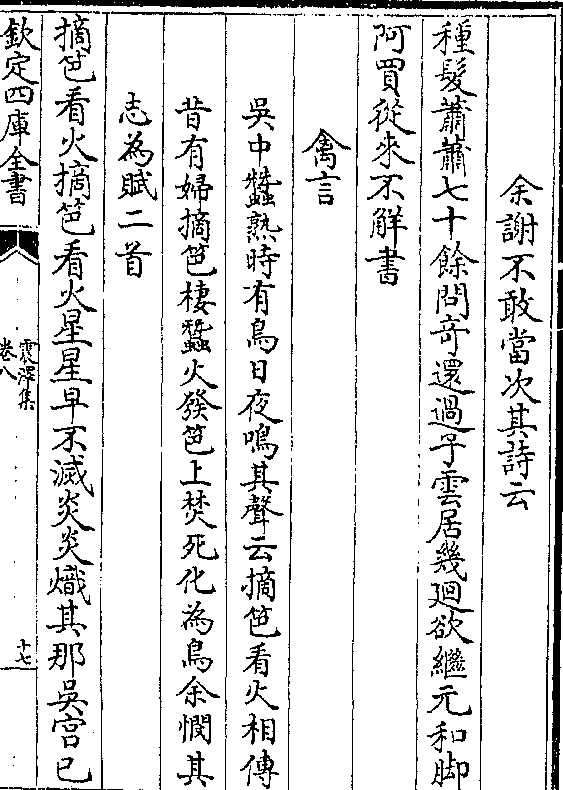 余謝不敢當次其詩云
種髮蕭蕭七十餘問竒還過子雲居幾廻欲繼元和脚
阿買從來不解書
禽言
吳中蠶熟時有鳥日夜鳴其聲云摘笆看火相傳
昔有婦摘笆棲蠶火發笆上焚死化為鳥余憫其
志為賦二首
摘笆看火摘笆看火星星早不滅炎炎熾其那吳宫已
欽定四庫全書
震澤集
卷八
十七